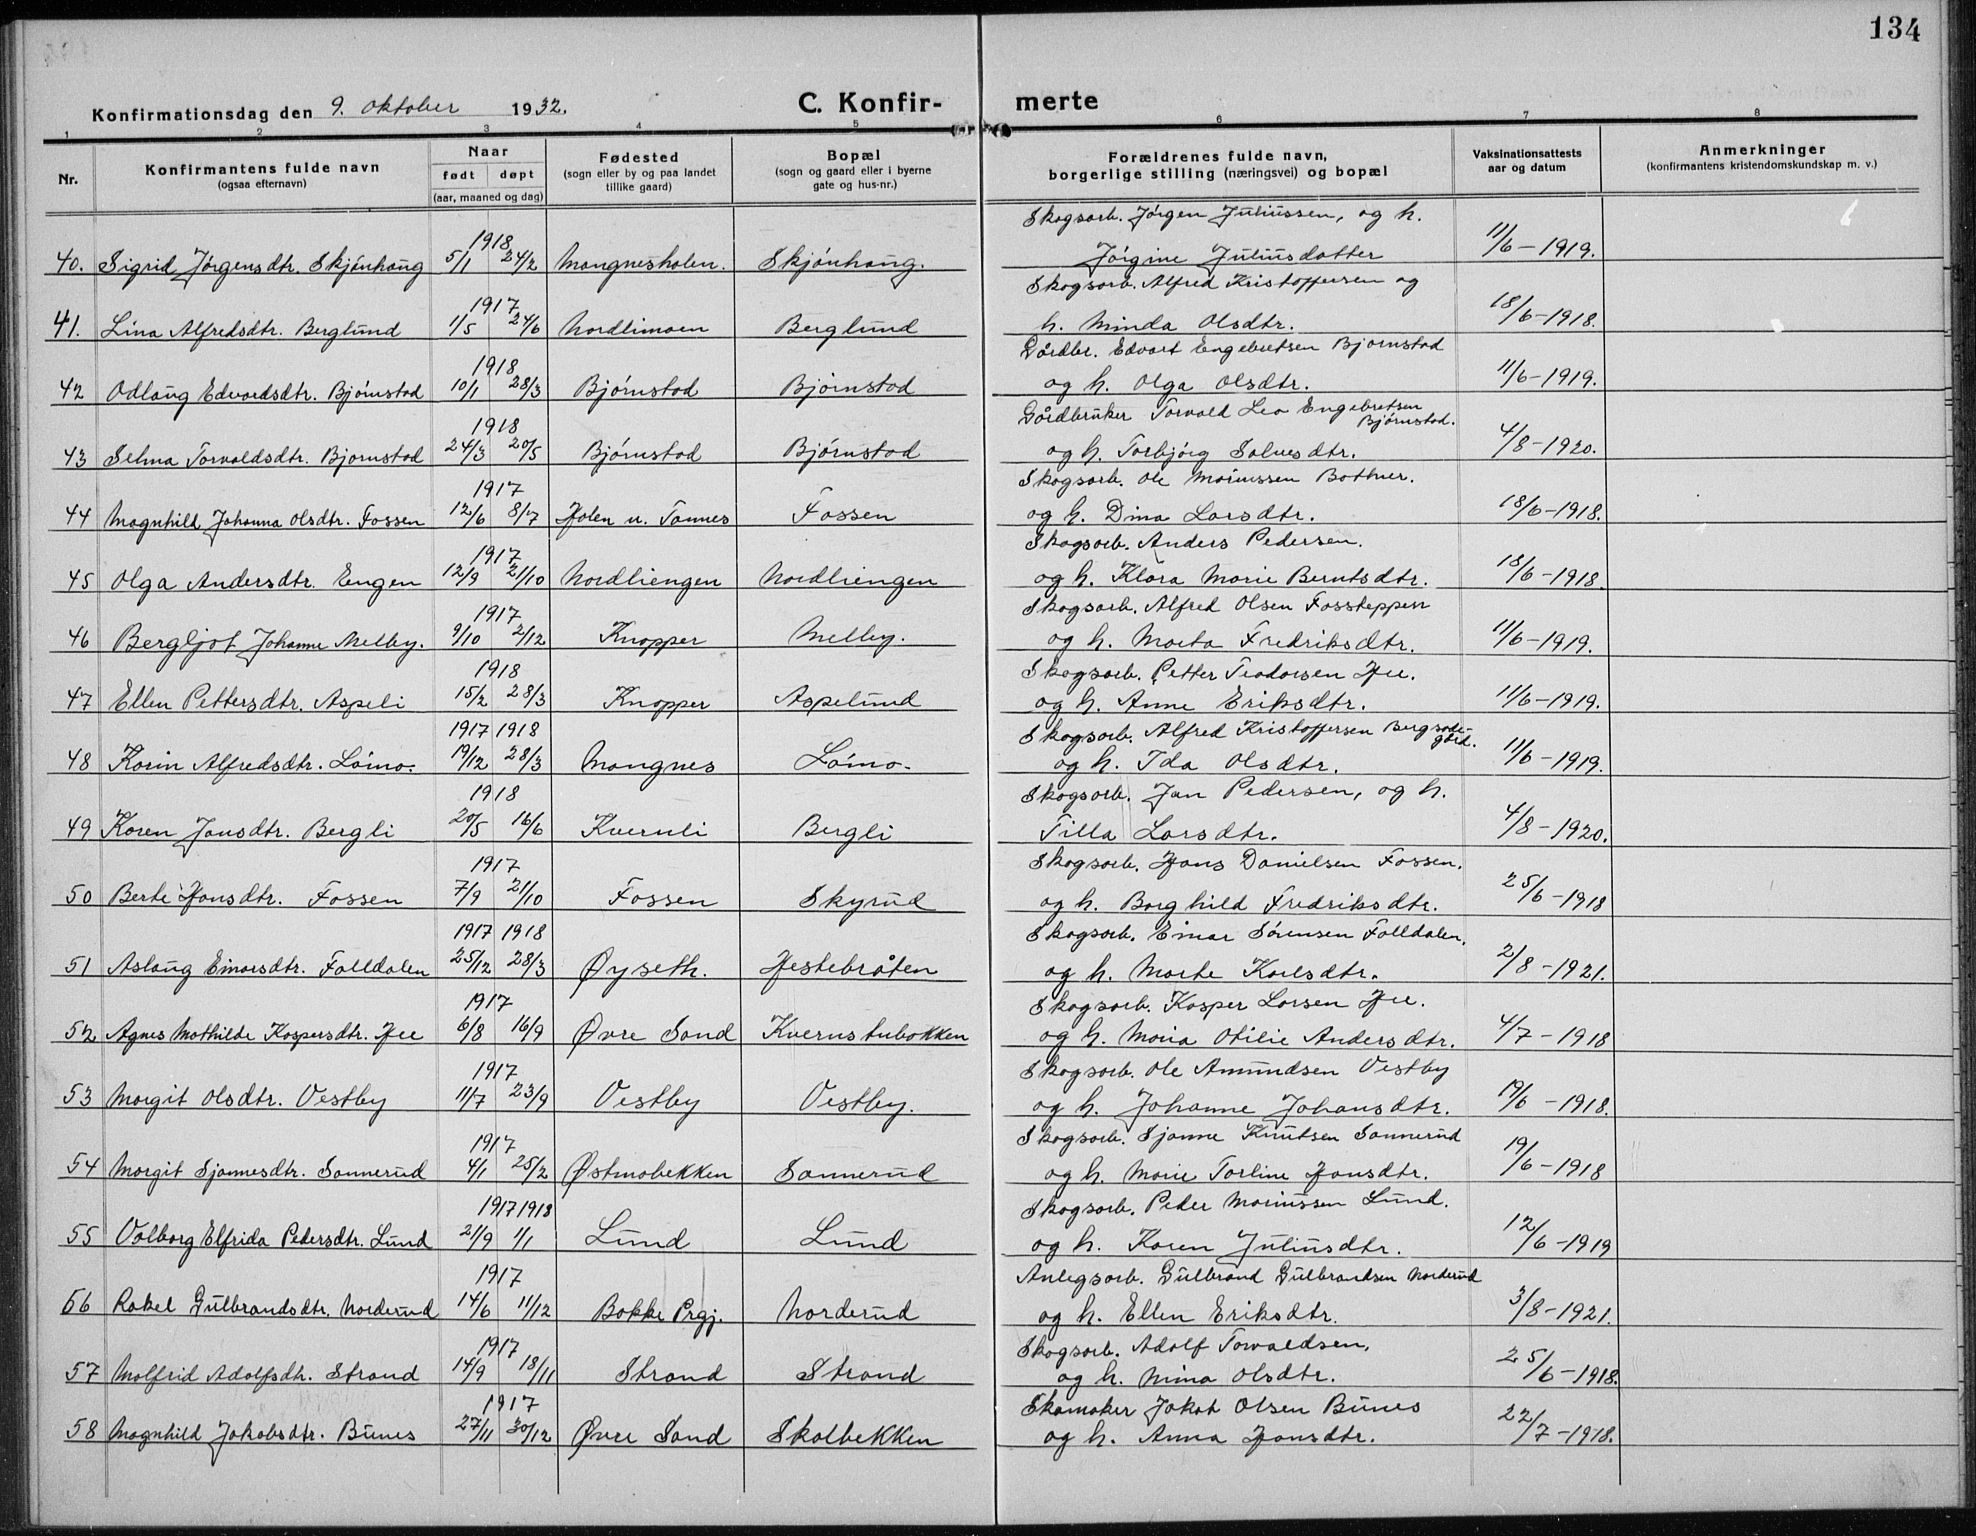 134
Konfirmationsdag den 9. oktober 1932.
C. Konfir-
merte
1 2 3 4 5 6 7 8
Nr.
Konfirmantens fulde navn
(ogsaa efternavn)
Naar
født døpt
(aar, maaned og dag)
Fødested
(sogn eller by og paa landet
tillike gaard)
Bopæl
(sogn og gaard eller i byerne
gate og hus-nr.)
Forældrenes fulde navn,
borgerlige stilling (næringsvei) og bopæl
Vaksinationsattests
aar og datum
Anmerkninger
(konfirmantens kristendomskundskap m. v.)
1918 Skogsarb. Jørgen Juliussen, og h.
40. Sigrid Jørgensdtr. Skjønhaug 5/1 24/2 Mangnesholen. Skjønhaug. Jørgine Juliusdatter 11/6-1919.
1917 Skogsarb. Alfred Kristoffersen og
41. Lina Alfredsdtr. Berglund 1/5 24/6 Nordlimoen Berglund h. Minda Olsdtr. 18/6-1918.
1918 Gårdbr. Edvart Engebretsen Bjørnstad
42 Odlaug Edvardsdtr. Bjørnstad 10/1 28/3 Bjørnstad Bjørnstad og h. Olga Olsdtr. 11/6-1919.
1918 Gårdbruker Torvald Leo Engebretsen Bjørnstad.
43 Selma Torvaldsdtr. Bjørnstad 24/3 20/5 Bjørnstad Bjørnstad og h. Torbjørg Solvesdtr. 4/8-1920.
1917 Skogsarb. Ole Mariussen Bottner.
44 Magnhild Johanna Olsdtr. Fossen 12/6 8/7 Holen u. Tannes Fossen og h. Dina Larsdtr. 18/6-1918.
1917 Skogsarb. Anders Pedersen.
45 Olga Andersdtr. Engen 12/9 21/10 Nordliengen Nordliengen og h. Klara Marie Berntsdtr. 18/6-1918.
1917 Skogsarb. Alfred Olsen Fossteppen
46 Bergljot Johanne Melby. 9/10 2/12 Knapper Melby. og h. Marta Fredriksdtr. 11/6-1919.
1918 Skogsarb. Petter Teodorsen Hee.
47 Ellen Pettersdtr. Aspeli 15/2 28/3 Knapper Aspelund og h. Anne Eriksdtr. 11/6-1919.
1917 1918 Skogsarb. Alfred Kristoffersen Bergsødegård.
48 Karin Alfredsdtr. Lømo. 19/12 28/3 Mangnes Lømo. og h. Ida Olsdtr. 11/6-1919.
1918 Skogsarb. Jan Pedersen, og h.
49 Karen Jansdtr. Bergli 20/5 16/6 Kvernli Bergli Tilla Larsdtr. 4/8-1920.
1917 Skogsarb. Hans Danielsen Fossen.
50 Berte Hansdtr. Fossen 7/9 21/10 Fossen Skyrud og h. Borghild Fredriksdtr. 25/6-1918
1917 1918 Skogsarb. Einar Sørensen Falldalen.
51 Aslaug Einarsdtr. Falldalen 25/12 28/3 Øyseth. Hestebråten og h. Marte Karlsdtr. 2/8-1921.
1917 Skogsarb. Kasper Larsen Hee.
52 Agnes Mathilde Kaspersdtr. Hee 6/8 16/9 Øvre Sand Kvernstubakken og h. Maria Otilie Andersdtr. 4/7-1918
1917 Skogsarb. Ole Amundsen Vestby
53 Margit Olsdtr. Vestby 11/7 23/9 Vestby Vestby. og h. Johanne Johansdtr. 19/6-1918.
1917 Skogsarb. Sjanne Knutsen Sannerud
54 Margit Sjannesdtr. Sannerud 4/1 25/2 Østmobekken Sannerud og h. Marie Torline Hansdtr. 19/6-1918
1917 1918 Skogsarb. Peder Mariussen Lund.
55 Valborg Elfrida Pedersdtr. Lund 21/9 1/1 Lund Lund og h. Karen Juliusdtr. 12/6-1919
1917 Anlegsarb. Gulbrand Gulbrandsen Norderud
56 Rakel Gulbrandsdtr. Norderud 14/6 11/12 Bakke Prgj. Norderud og h. Ellen Eriksdtr. 3/8-1921.
1917 Skogsarb. Adolf Torvaldsen.
57 Malfrid Adolfsdtr. Strand 14/9 18/11 Strand Strand og h. Mina Olsdtr. 25/6-1918.
1917 Skomaker Jakob Olsen Bunes
58 Magnhild Jakobsdtr. Bunes 27/11 30/12 Øvre Sand Skalbekken og h. Anna Hansdtr. 22/7-1918.